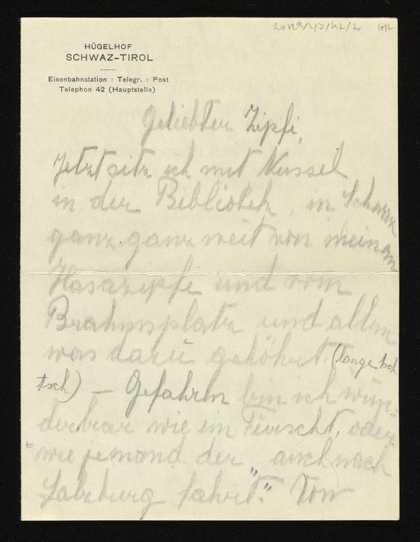 HÜGELHOF
SCHWAZ-TIROL
Eisenbahnstation : Telegr. : Post
Telephon 42 (Hauptstelle)
Geliebter Zipfi,
Jetzt sitz ich mit Nussel
in der Bibliotek, in Schwaz
ganz-ganz weit von meinem
Hasazipfi und vom
Brahmsplatz und allem
was dazu gehöhrt
— Gefahren bin ich wun-
derbar wie ein Fürscht, oder
"wie jemand der auch nach
Salzburg fahrt." Von